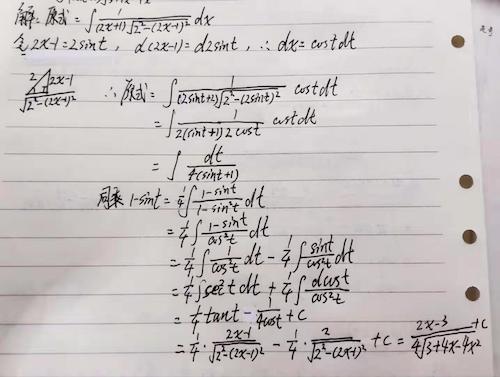 解: 原式 = ∫ 1/((2x+1)√(2²-(2x-1)²)) dx
令 2x-1=2sint, d(2x-1)=d2sint, ∴ dx=costdt
2 2x-1 √(2²-(2x-1)²)
∴ 原式= ∫ 1/((2sint+2)√(2²-(2sint)²)) costdt
= ∫ 1/(2(sint+1)2cost) costdt
= ∫ dt/(4(sint+1))
同乘 1-sint = 1/4 ∫ (1-sint)/(1-sin²t) dt
= 1/4 ∫ (1-sint)/(cos²t) dt
= 1/4 ∫ 1/(cos²t) dt - 1/4 ∫ sint/(cos²t) dt
= 1/4 ∫ sec²t dt + 1/4 ∫ dcost/(cos²t)
= 1/4 tant - 1/(4cost) + C
= 1/4 · (2x-1)/√(2²-(2x-1)²) - 1/4 · 2/√(2²-(2x-1)²) + C = (2x-3)/(4√(3+4x-4x²)) + C